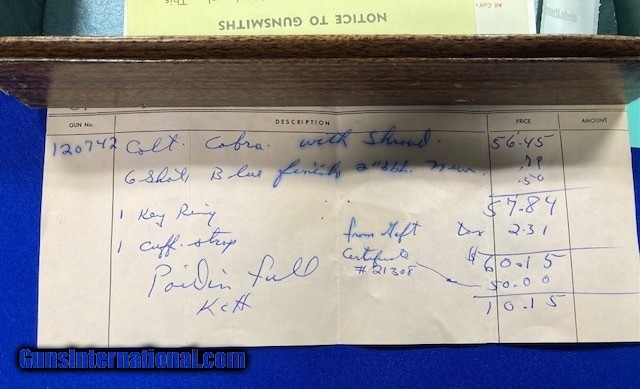 NOTICE TO GUNSMITHS
This
All Colt's
GUN No. DESCRIPTION PRICE AMOUNT
120742 Colt. Cobra. with Shroud. 56.45
6 Shots Blue finish 2" bbl. New. .79
.50
57.84
1 Key Ring from Gift tax 2.31
1 cuff-strap Certificate $60.15
#21308 50.00
Paid in full 10.15
KCH
GunsInternational.com